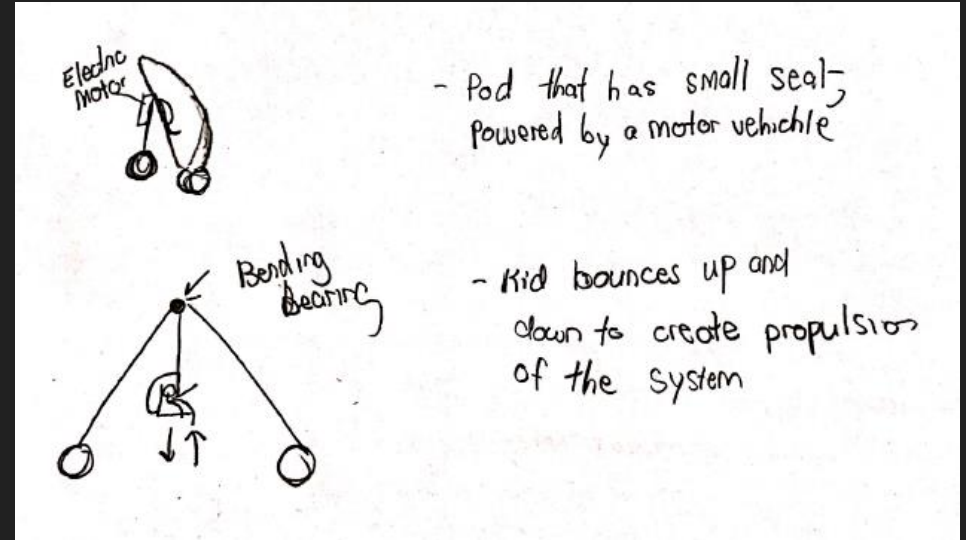 Electric
motor
- Pod that has small seat,
Powered by a motor vehichle
Bending
Bearing
- Kid bounces up and
down to create propulsion
of the system